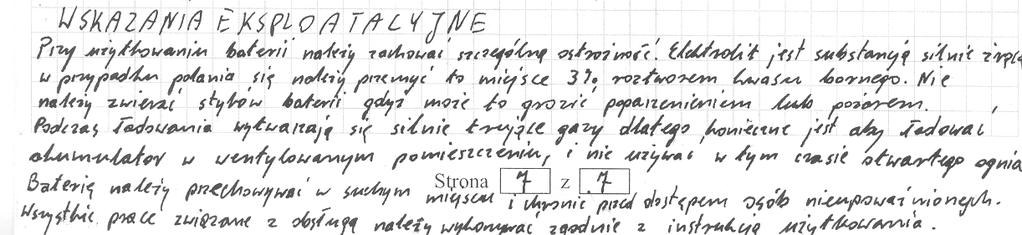 WSKAZANIA EKSPLOATACYJNE
Przy użytkowaniu baterii należy zachować szczególną ostrożność. Elektrolit jest substancją silnie żrącą
w przypadku polania się należy przemyć to miejsce 3% roztworem kwasu bornego. Nie
należy zwierać styków baterii gdyż może to grozić poparzenieniem lub pożarem.
Podczas ładowania wytwarzają się silnie trujące gazy dlatego konieczne jest aby ładować
akumulator w wentylowanym pomieszczeniu, i nie używać w tym czasie otwartego ognia
Baterię należy przechowywać w suchym miejscu i chronić przed dostępem osób nieupoważnionych.
Strona 7 z 7
Wszystkie prace związane z obsługą należy wykonywać zgodnie z instrukcją użytkowania.